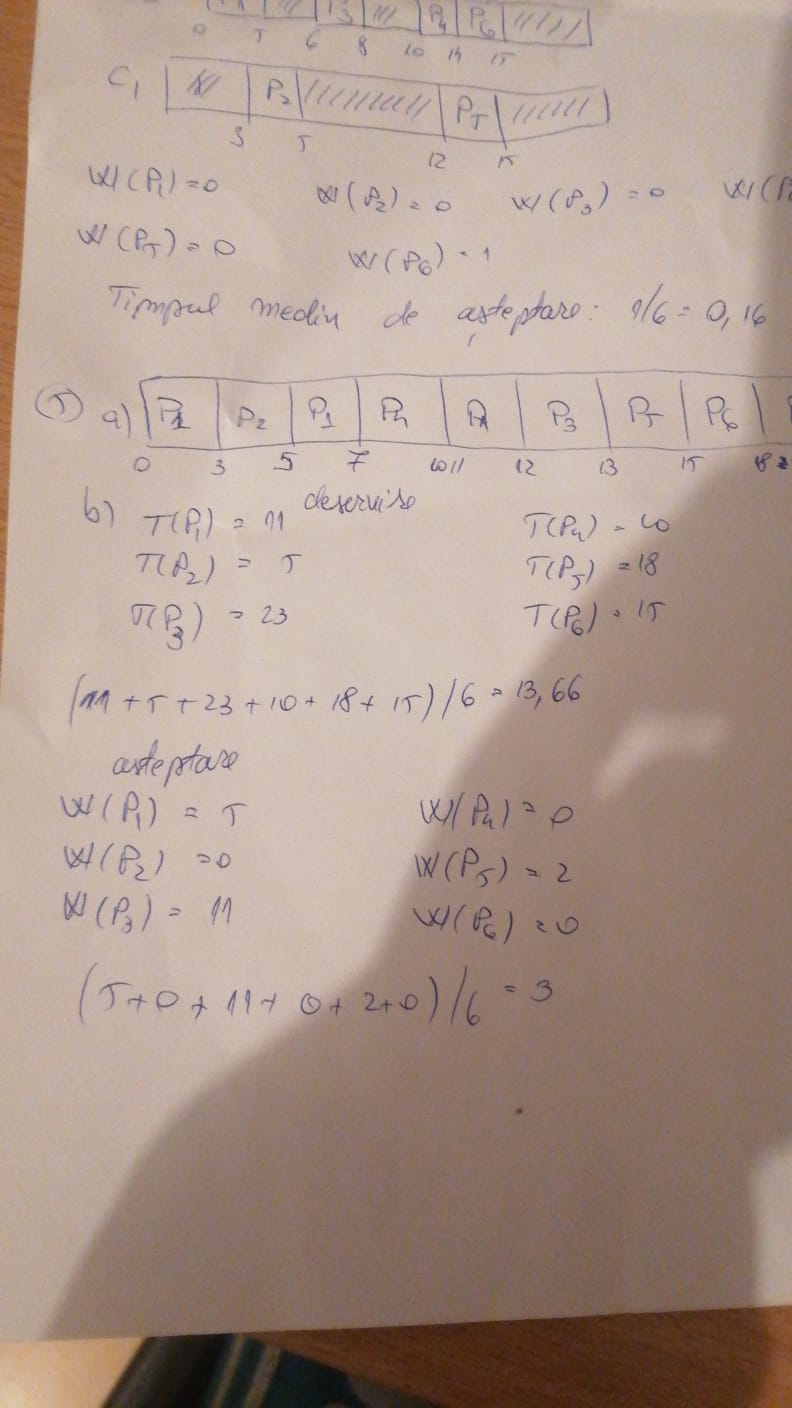 P3 P4 P6
0 5 6 8 10 14 15
C1 P2 P5
3 5 12 15
W(P1)=0 W(P2)=0 W(P3)=0 W(P
W(P5)=0 W(P6)=1
Timpul mediu de așteptare: 1/6=0,16
5 a) P1 P2 P1 P4 P1 P3 P5 P6
0 3 5 7 10 11 12 13 15 18
b) deservire
T(P1) = 11 T(P4)=10
T(P2) = 5 T(P5)=18
T(P3) = 23 T(P6)=15
(11+5+23+10+18+15)/6=13,66
asteptare
W(P1) = 5 W(P4)=0
W(P2) =0 W(P5)=2
W(P3)= 11 W(P6)=0
(5+0+11+0+2+0)/6=3